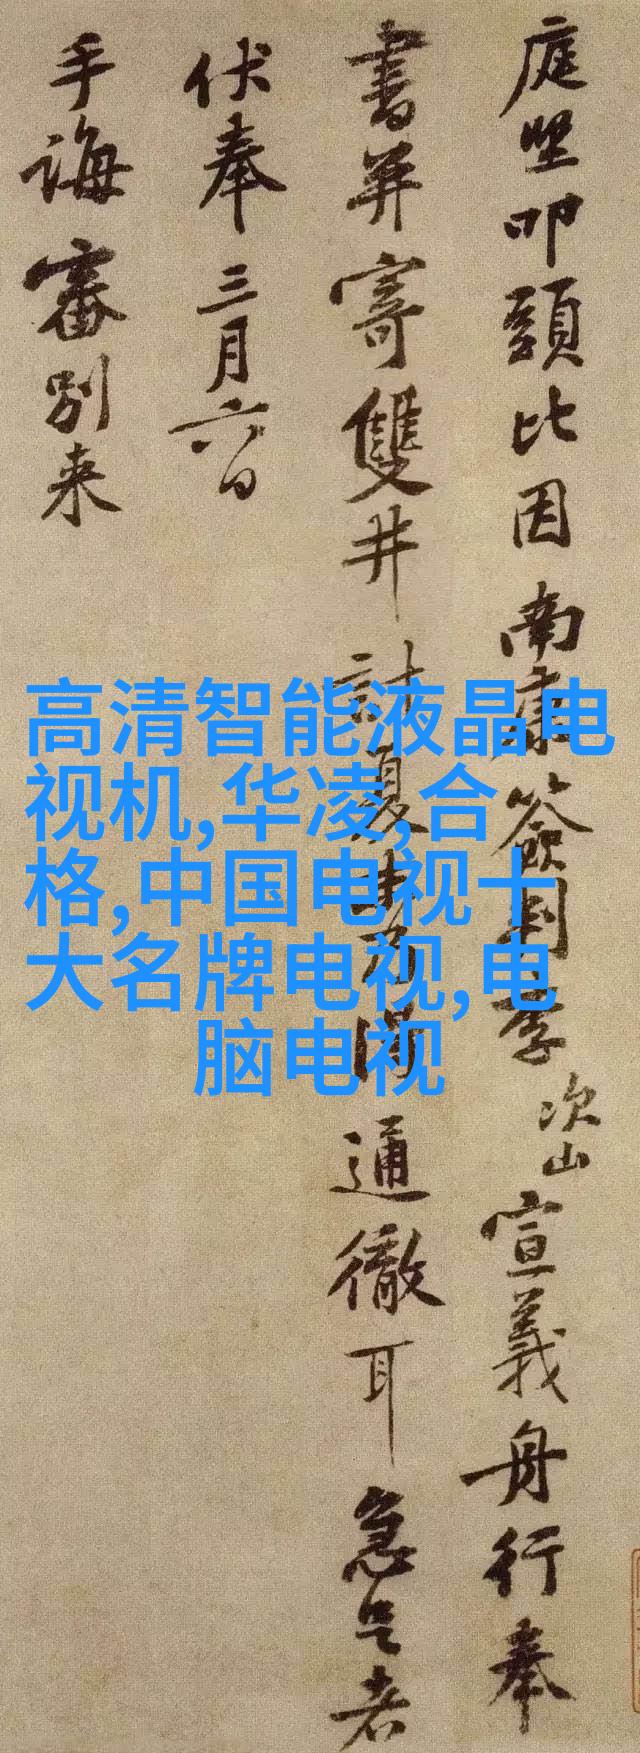 庭堅叩頭比因南康簽判李次山宣義舟行奉
書并寄雙井計夏中乃得通徹耳急足者
伏奉三月六日
手誨審別来
高清智能液晶电
视机,华凌,合
格,中国电视十
大名牌电视,电
脑电视